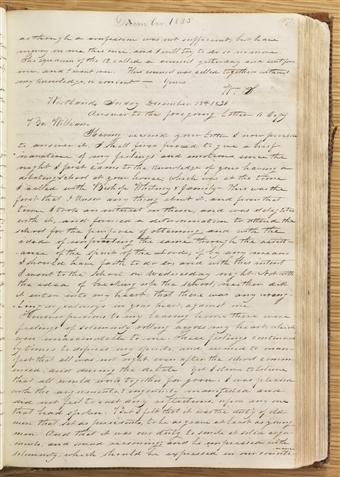 December 1835
as though a confession was not sufficient, but have
mercy on me this once, and I will try to do so no more.
The Quorum of the 12, called a council yesterday and sent for
me, and I went over. This council was called together without
my knowledge or consent— Yours
Wm S
Kirtland Friday December 18th 1835
Answer to the foregoing Letter A Copy
Br. William
Having received your Letter I now proceed
to answer it, & shall first proceed to give a brief
narration of my feelings and emotions since the
night I first came to the knowledge of your having a
debating school at your house, which was at the time
I called with Bishop Whitney & family— this was the
first that I knew any thing about it, and from that
time I took an interest in them, and was delighted
with it, and formed a determination to attend the
school for the purpose of obtaining and with the
idea of imparting the same through the assist-
ance of the spirit of the Lord, if by any means
I should have faith to do so, and with this intent
I went to the school on Wednesday night. Not with
the idea of breaking up the school, neither did
it enter into my heart, that there was any wrang-
ling or jealousy in your heart against me.
feelings of solemnity rolling across my heart, which
were unaccountable to me. These feelings continued
that all was not right, even after the school commenced
and during the debate. Yet I strove to believe
that all would work together for good. I was pleased
with the arguments
not feel to cast any reflections, upon any one
that had spoken. But I felt that it was the duty of old
men that set as presidents, to be as grave at least as young
men. And that it was our duty to smile at solid argu-
ments, and sound reasonings, and be impressed with
solemnity, which should be expressed in our counte-